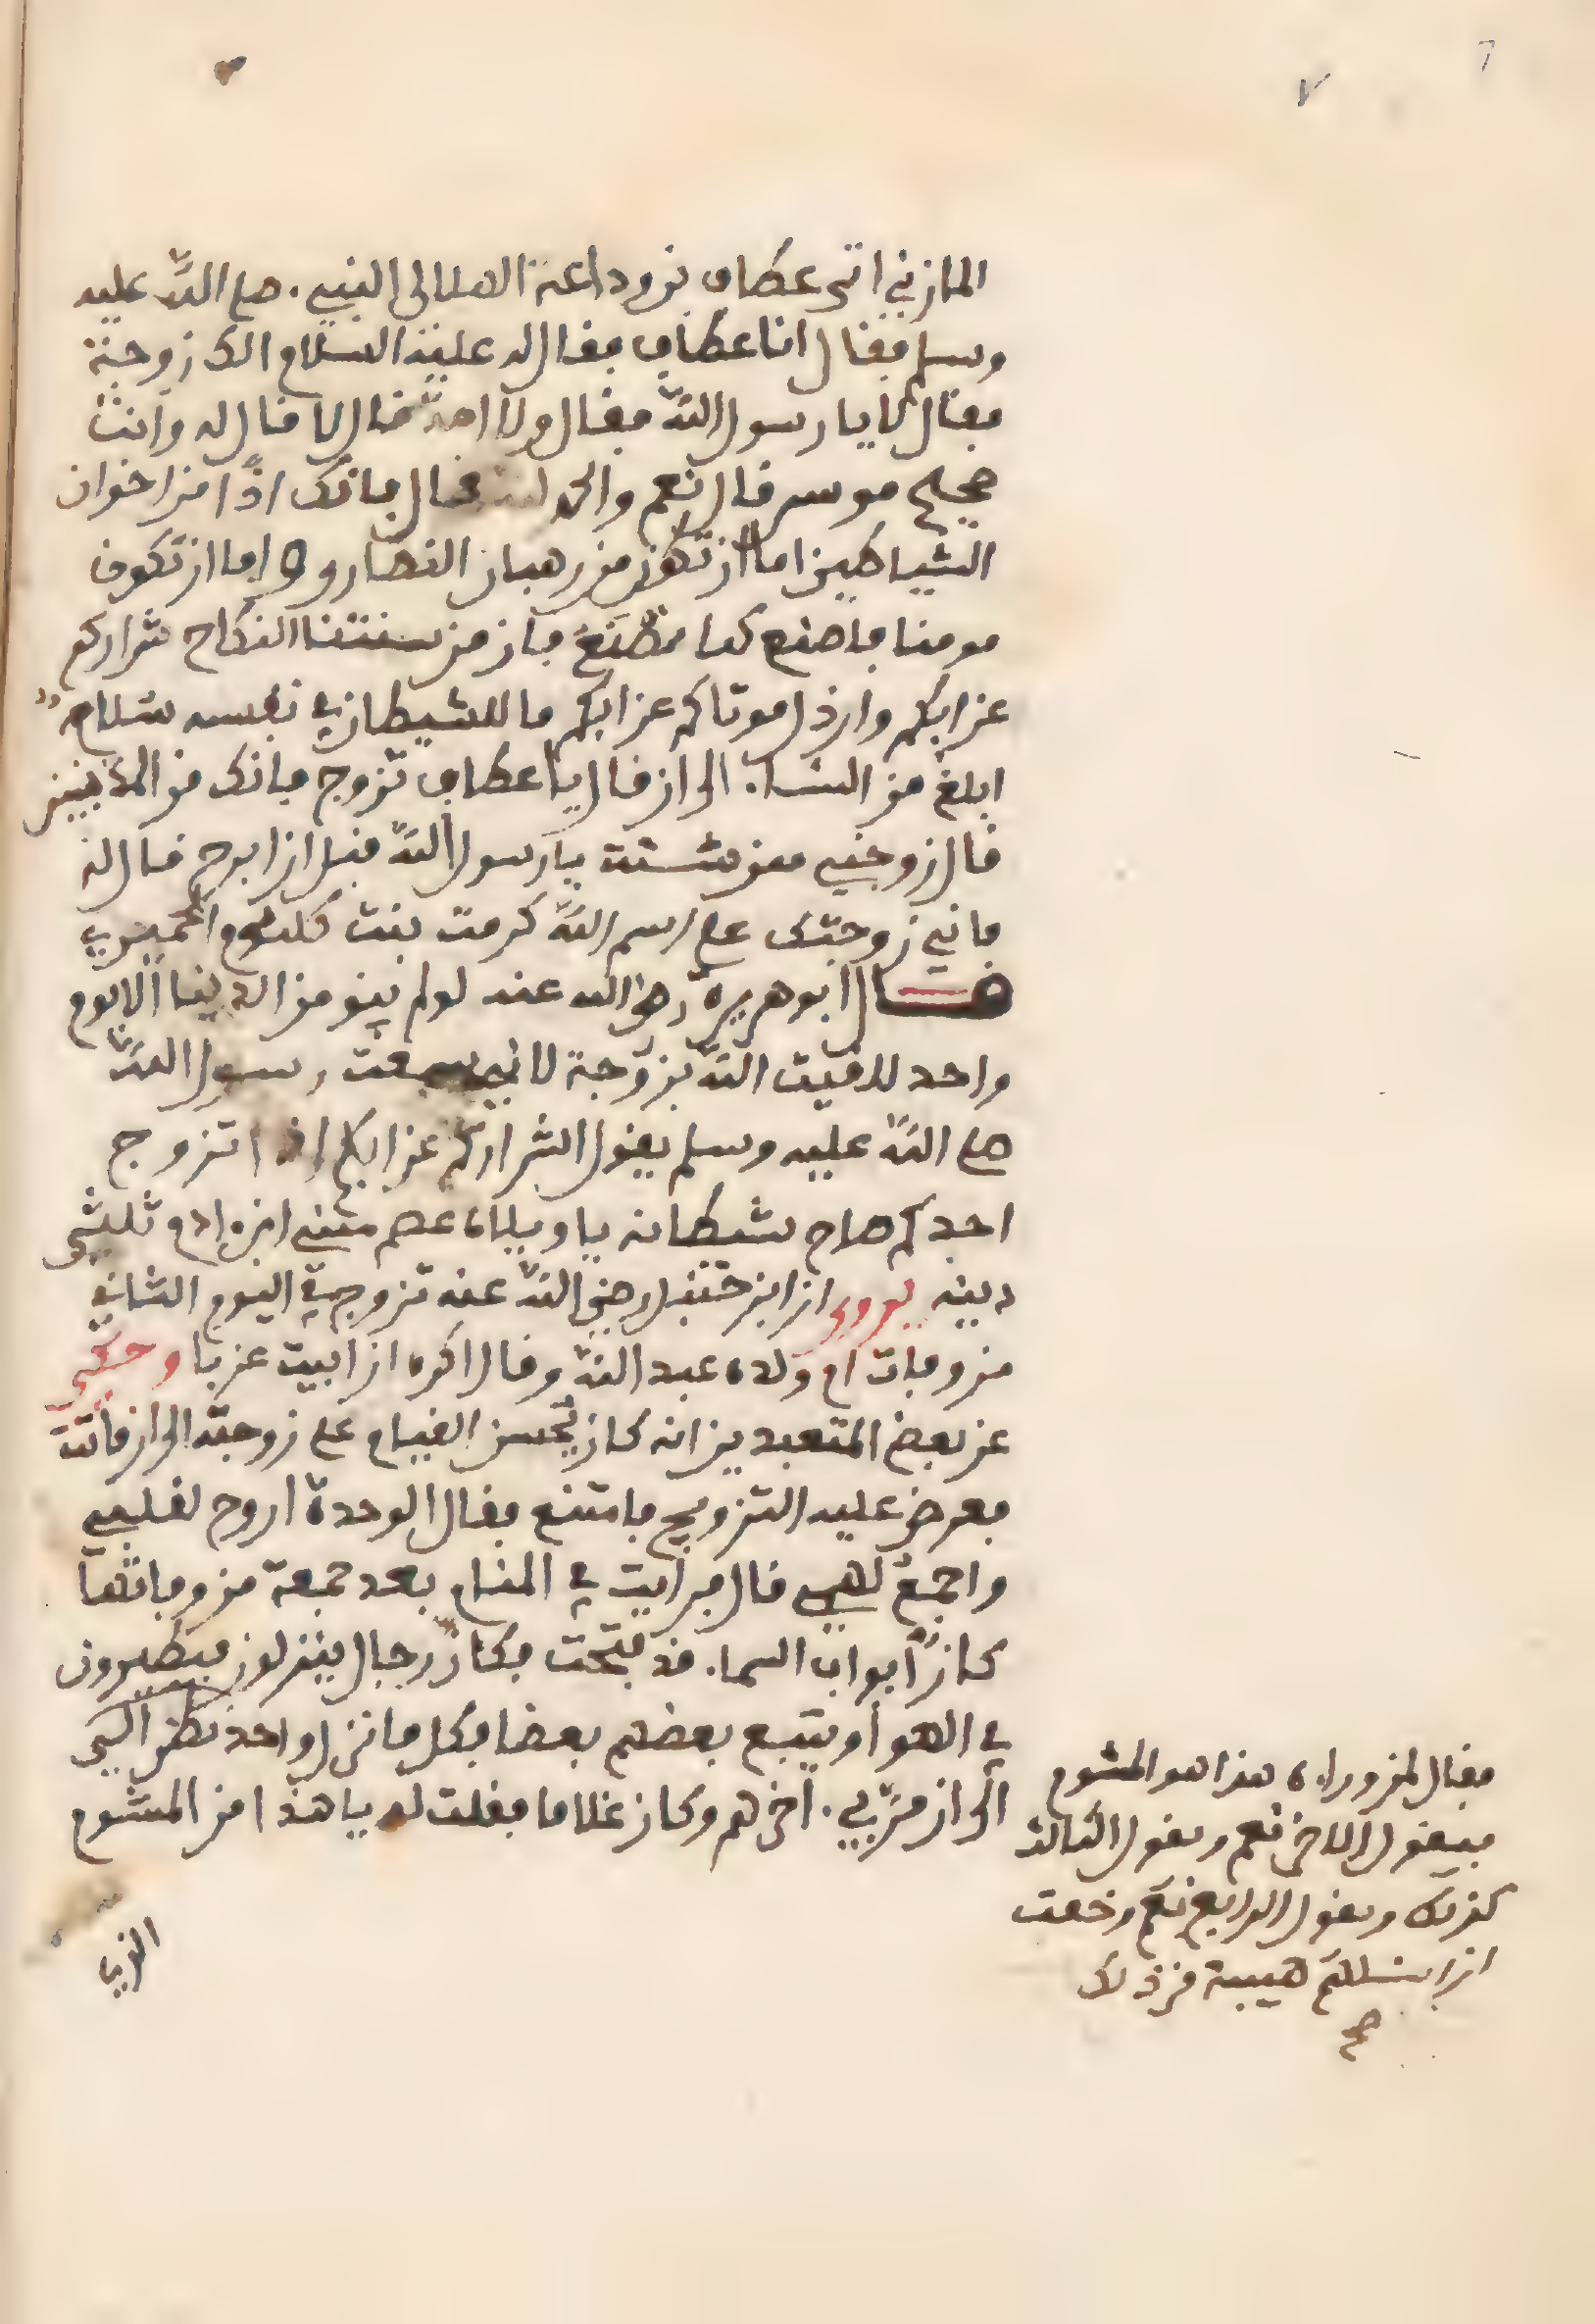 المازني اتى عطاف بن وداعة الهلالي النبي صلى الله عليه
وسلم فقال انا عطاف فقال له عليه السلام الك زوجة
فقال لا يا رسول الله فقال ولا امة قال لا قال له وانت
صحيح موسر قال نعم والحمد لله قال فانك اذا من اخوان
الشياطين اما ان تكون من رهبان النصارى واما ان تكون
مومنا فاصنع كما نصنع فان من سنتنا النكاح شراركم
عزابكم وارذل موتاكم عزابكم ما للشيطان في نفسه سلاح
ابلغ من النساء الى ان قال يا عطاف تزوج فانك من المذنبين
قال زوجني ممن شئت يا رسول الله قبل ان ابرح قال له
فاني زوجتك على اسم الله كرمة بنت كلثوم الحميري
قال ابو هريرة رضي الله عنه لو لم يبق من الدنيا الا يوم
واحد للقيت الله بزوجة لاني سمعت رسول الله
صلى الله عليه وسلم يقول الشراركم عزابكم اذا تزوج
احدكم صاح شيطانه يا ويلاه عصم مني ابن ادم ثلثي
دينه يروى ان ابن حنبل رضي الله عنه تزوج في اليوم الثاني
من وفات ام ولده عبد الله وقال اكره ان ابيت عزبا وحكي
عن بعض المتعبدين انه كان يحسن القيام على زوجته الى ان ماتت
فعرض عليه التزويج فامتنع فقال الوحدة اروح لقلبي
واجمع لهمي قال فرايت في المنام بعد جمعة من وفاتها
كان ابواب السماء قد فتحت فكان رجال ينزلون فيطيرون
في الهوا ويتبع بعضهم بعضا فكل ما نزل واحد نظر الي
الى ان مر بي اخرهم وكان غلاما فقلت له يا هذا من المشوم
الذي
فقال لمن وراءه هذا هو المشوم
فيقول الاخر نعم ويقول الثالث
كذلك ويقول الرابع نعم فخفت
ان اسئلهم هيبة من ذلك
صح